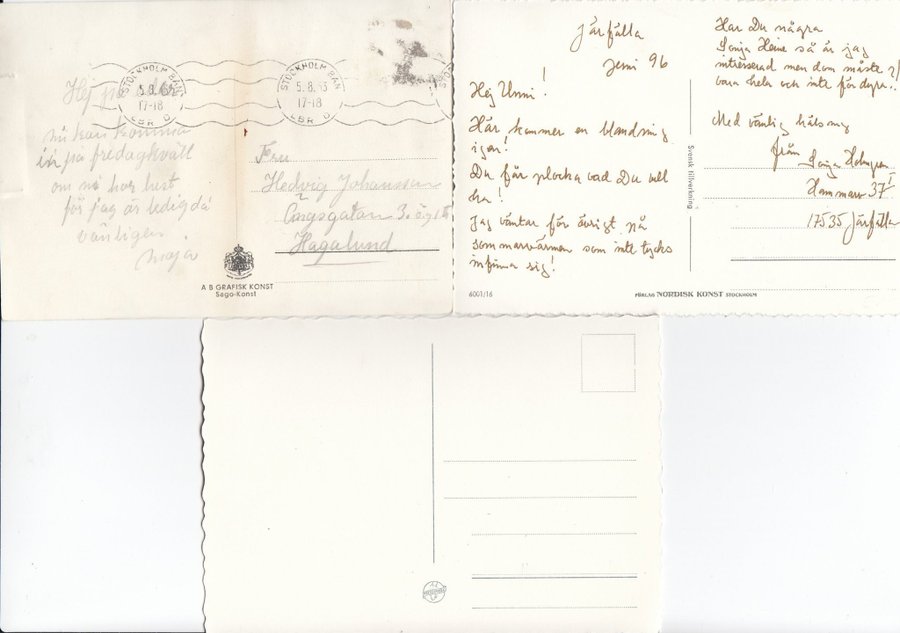 STOCKHOLM BAN
5.8.
17-18
LBR D
STOCKHOLM BAN
5.8.63
17-18
LBR D
Hej på
kan komma
in på fredagkväll
om ni har lust
för jag är ledig då
vänligen
Maja
Fru
Hedvig Johansson
Ängsgatan 3.
Hagalund
A B GRAFISK KONST
Sago-Konst
Järfälla
Juni 96
Hej Unni!
Här kommer en blandning
igen!
Du får plocka vad Du vill
ha!
Jag väntar för övrigt på
sommarvärmen som inte tycks
infinna sig!
6001/16
Svensk tillverkning
FÖRLAG NORDISK KONST STOCKHOLM
Har Du några
Sonja Henie så är jag
intresserad men dom måste
vara hela och inte för dyra.
Med vänlig hälsning
från Sonja Holmgren
37 I
17535 Järfälla